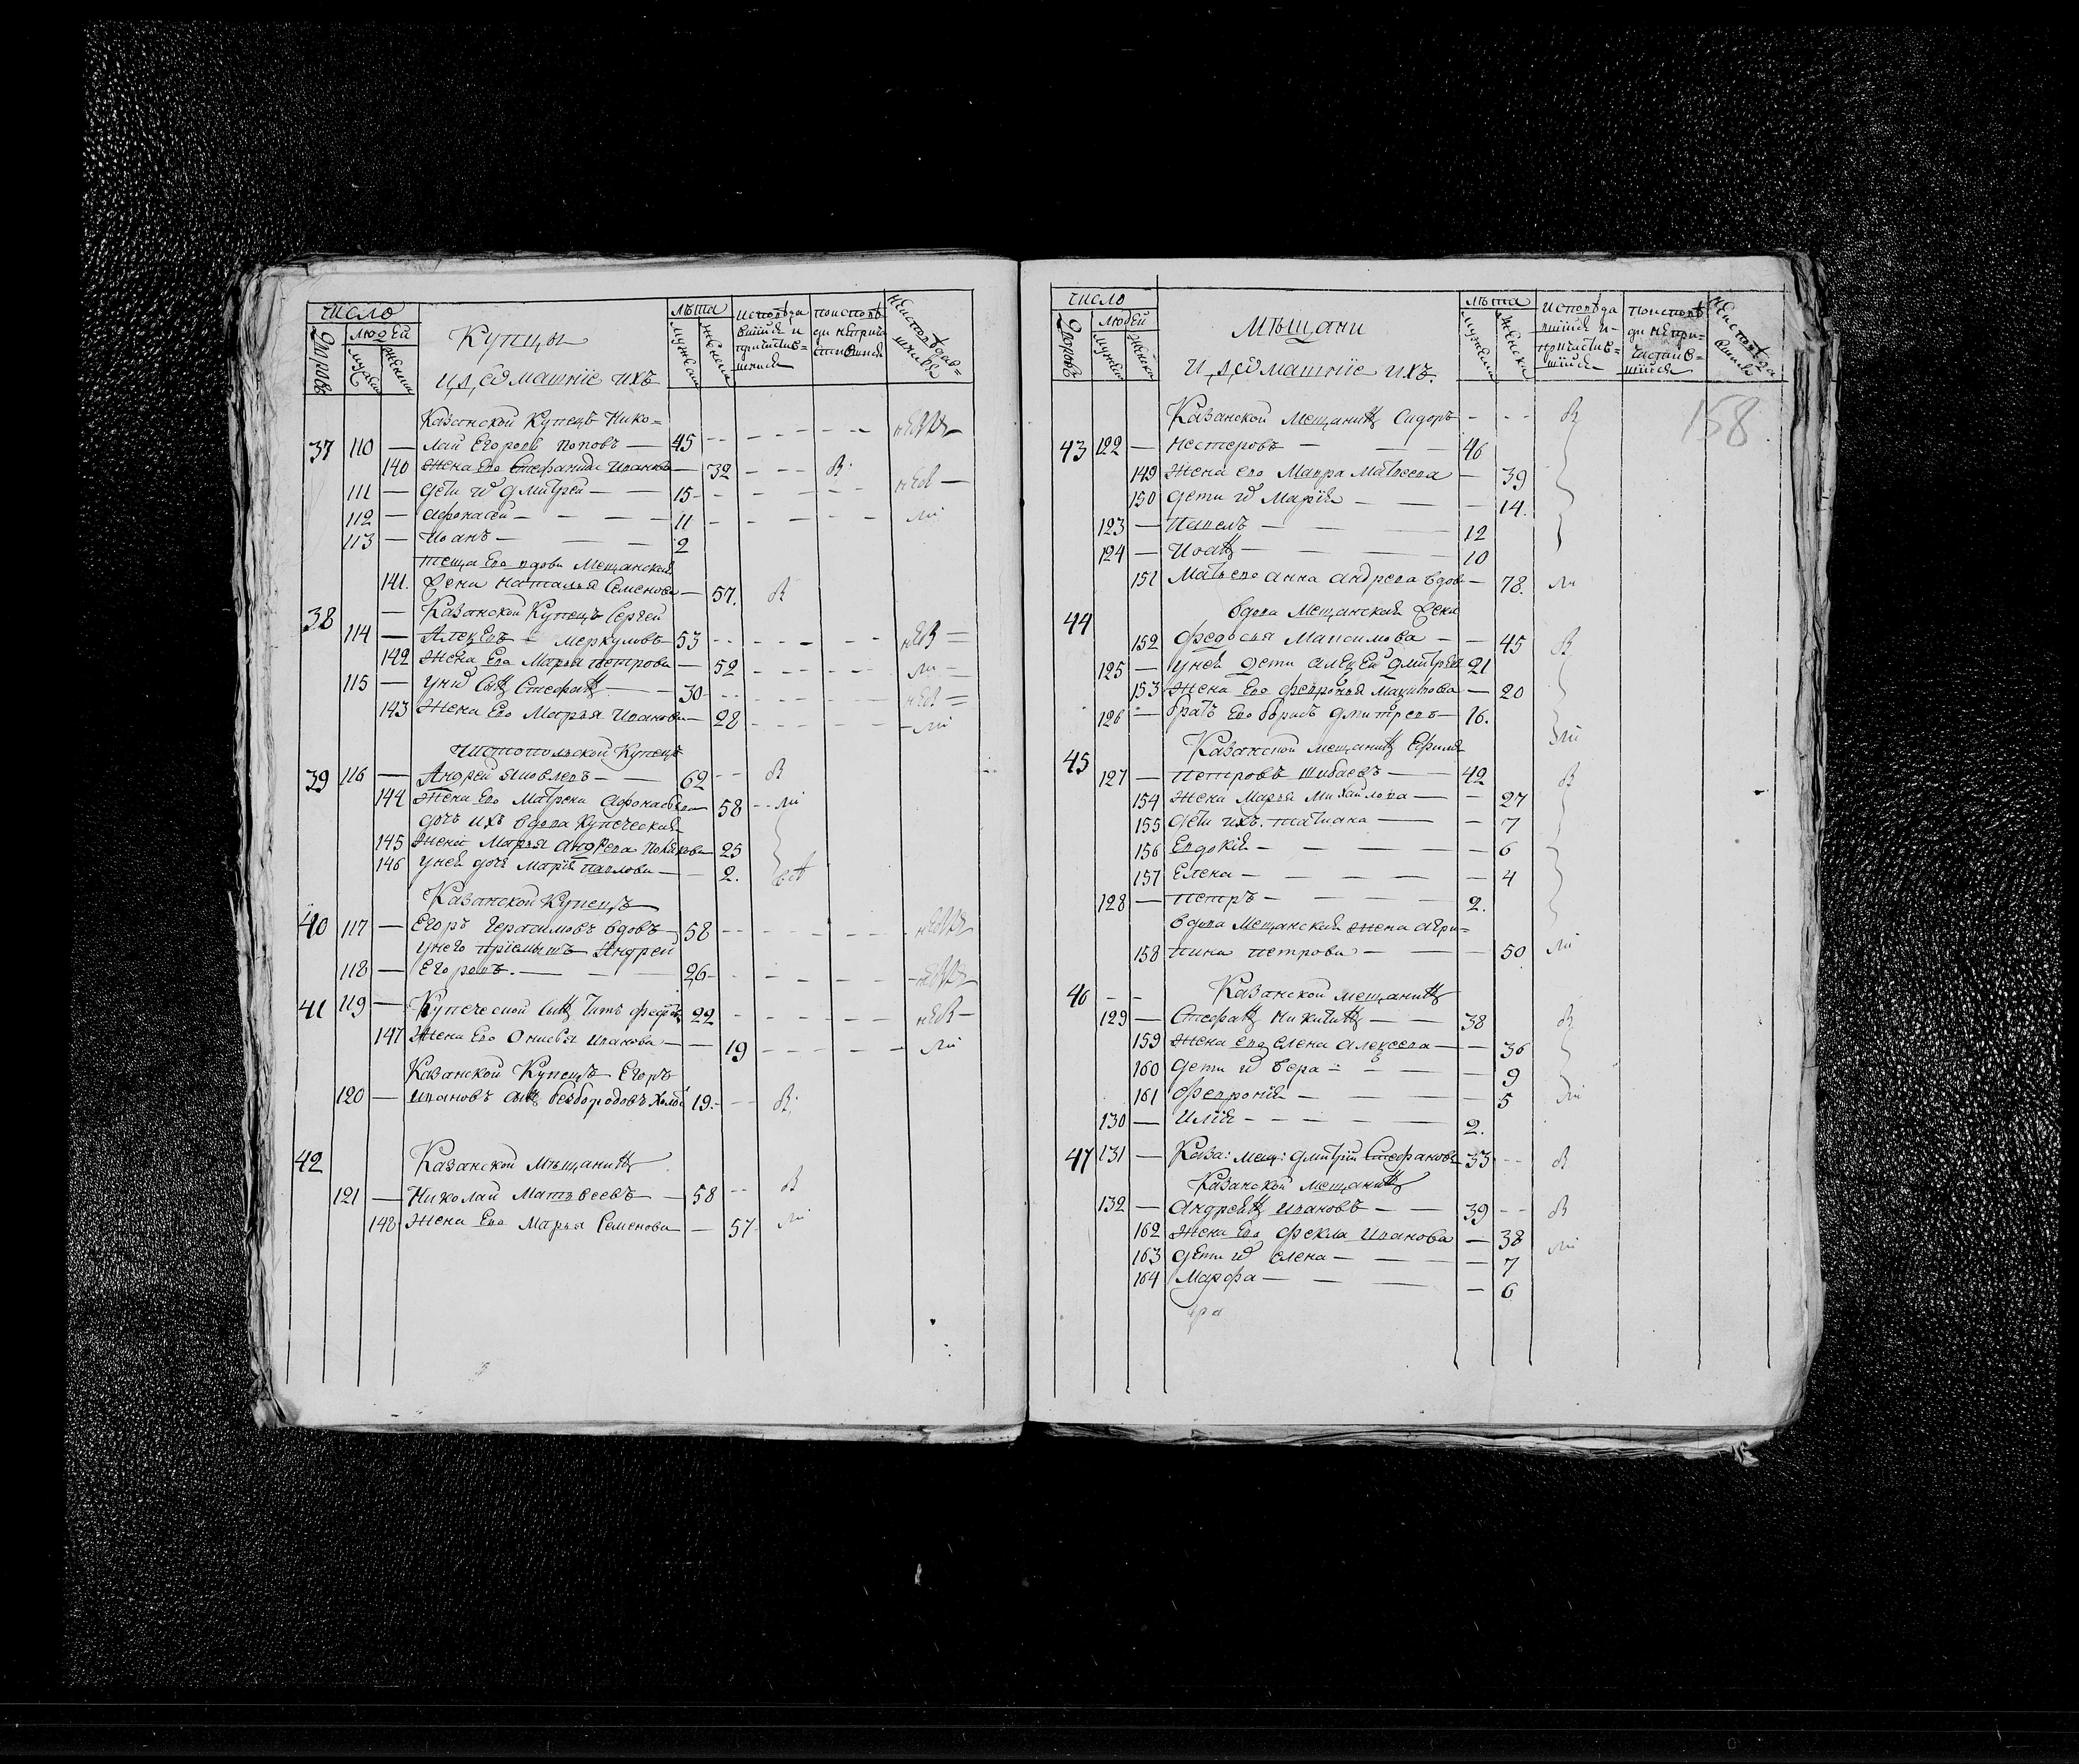 число
Дворовъ
людей
мужска
женска
Купцы
и домашніе ихъ
лѣта
мужеска
женска
исповѣда
вшіися и
причастив=
шіися
поисповѣ
ди непріча
стившіися
неисповѣдав=
шіися
Казанской Купецъ Нико=
37 110 — лай Егоровъ Поповъ — 45
140 Жена Его Стефанида Иванова — 32 В
111 — дети w Дмитрей — — 15
112 — Афонасей — — — 11
113 — Иоанъ — — — 2
теща Его вдова Мещанская
141. Жена Наталья Семенова — 57. В
38 — Казанской Купецъ Сергей
114 — Алексѣевъ Меркуловъ 53
142 Жена Его Марья Петрова — 52
115 — У них Сынъ Стефанъ — 30
143 Жена Его Марья Иванова — 28
Чистопольской Купецъ
39 116 — Андрей Яковлевъ — — 62 В
144 Жена Его Матрена Афонасьева 58
дочь ихъ вдова Купеческая
145 Жена Марья Андреева Полякова 25
146 У ней дочь Марія Павлова — — 2.
Казанской Купецъ
40 117 — Егоръ Герасимовъ вдовъ — 58
Унего пріемышъ Андрей
118 — Егоровъ. — — — 26
41 119 — Купеческой Сынъ Титъ 22
147 Жена Его Онисья Иванова — — 19
Казанской Купецъ Егоръ
120 — Ивановъ Сынъ Безбородовъ 19. В
42 Казанской Мѣщанинъ
121 — Николай Матвеевъ — 58 В
148 Жена Его Марья Семенова — 57
число
Дворовъ
людей
мужска
женска
Мѣщани
и домашніе ихъ.
лѣта
мужеска
женска
исповѣда
вшіися и=
причастив=
шіися
поисповѣ
ди непри=
частив=
шіися
неисповѣда
вшіися
158
Казанской Мещанинъ Сидоръ В
43 122 — Нестеровъ — — 46
149 Жена его Мавра Матвеева — 39
150 дети w Марія — — — 14.
123 — Павелъ — — — 12
124 — Иоанъ — — — 10
151 Мать его Анна Андреева вдова — 78.
44 вдова Мещанская Жена
152 Федосья Максимова — — 45 В
125 — У ней дети Алексей Дмитрей 21
153 Жена Его Февронья — 20
126 — братъ Его борисъ Дмитревъ — 16.
45 Казанской мещанинъ
127 — Петровъ Шибаевъ — — 42 В
154 Жена Марья Михайлова — — 27
155 дети ихъ. Татиана — — 7
156 Евдокія — — — — 6
157 Елена — — — — 4
128 — Петръ — — — 2.
вдова Мещанская Жена Агри=
158 пина Петрова — — 50
46 Казанской мещанинъ
129 — Стефанъ Никитинъ — — 38 В
159 Жена его Елена Алексеева — — 36
160 дети w Вера — — 9
161 Февронія — — — 5
130 — Илія — — — — 2.
47 131 — Каза: мещ: Дмитрій Стефановъ 33 В
Казанской мещанинъ
132 — Андреянъ Ивановъ — — 39 В
162 Жена Его Фекла Иванова — 38
163 дети w Елена — — — 7
164 Марфа — — — 6